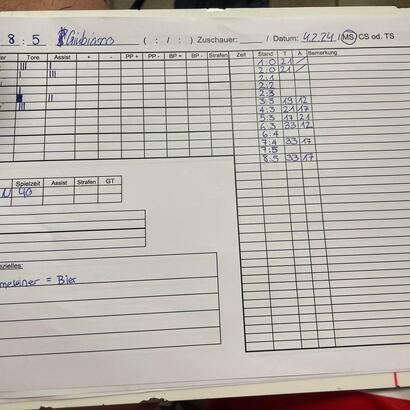 8 : 5 ( : / : ) Zuschauer: / Datum: 4.2.24 / MS CS od. TS
Tore Assist + - PP + PP - BP + BP - Strafen Zeit Stand T A Bemerkung
1:0 21 /
2:0 21 /
2:1
2:2
2:3
3:3 19 12
4:3 21 17
5:3 17 21
6:3 33 12
6:4
7:4 33 17
7:5
8:5 33 17
Spielzeit Assist Strafen GT
40
= Bier